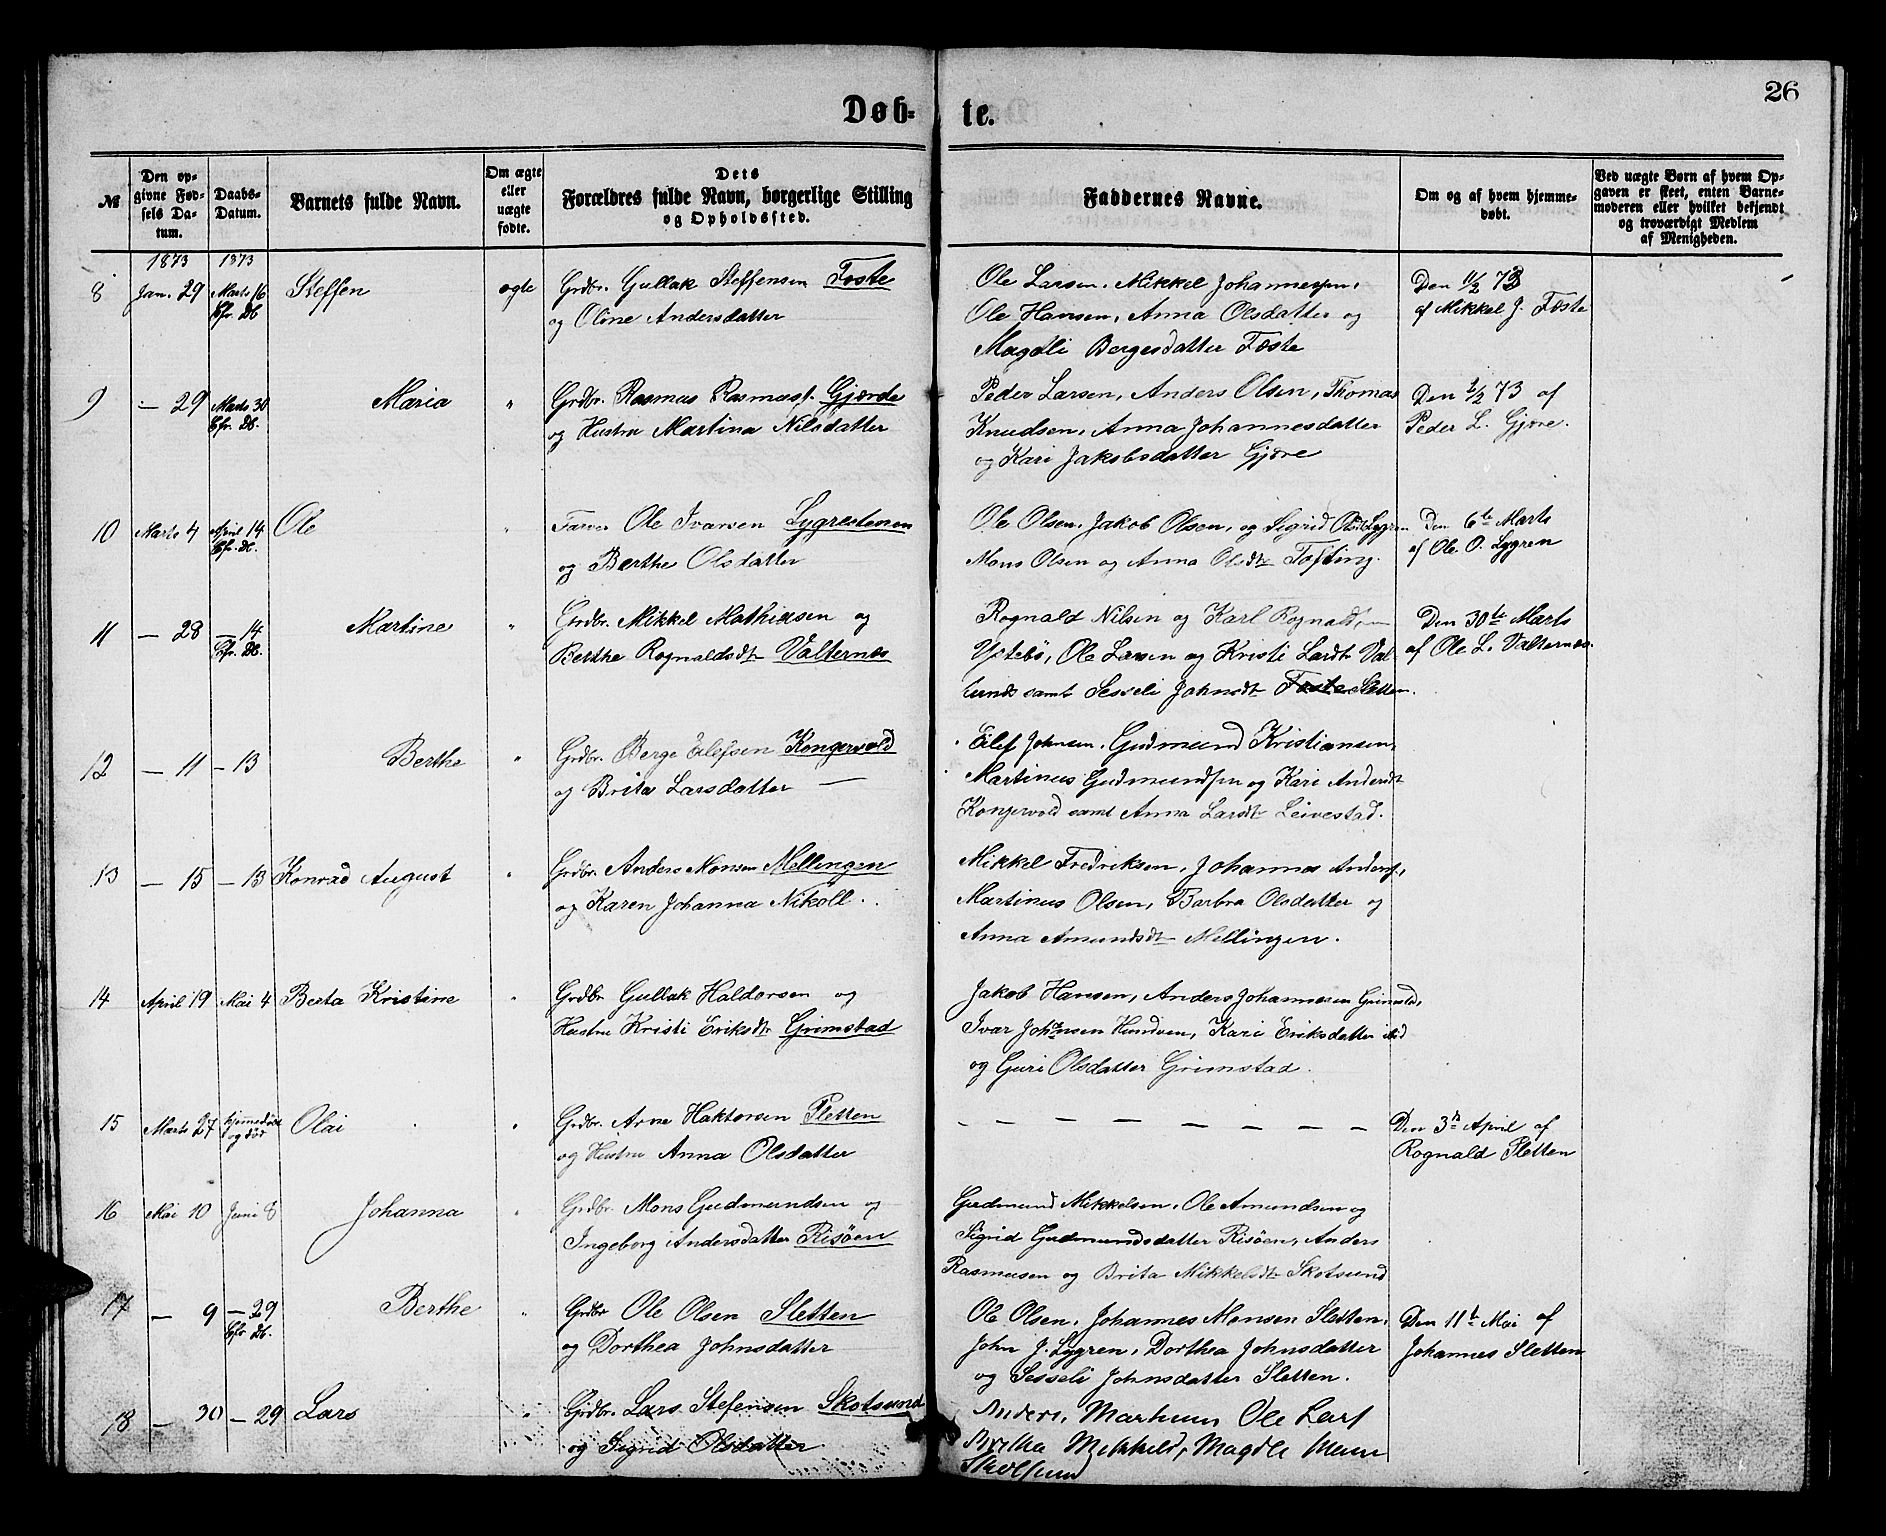 26
Døb- te.
№
Den op-
givne Fød-
sels Da-
tum.
Daabs-
Datum.
Barnets fulde Navn.
Om ægte
eller
uægte
fødte.
Dets
Forældres fulde Navn, borgerlige Stilling
og Opholdssted.
Faddernes Navne.
Om og af hvem hjemme-
døbt.
Ved uægte Børn af hvem Op-
gaven er skeet, enten Barne-
moderen eller hvilket bekjendt
og troværdigt Medlem
af Menigheden.
1873 1873
8 Jan. 29 Marts 16 Steffen ægte Grdbr. Gullak Steffensen Føste Ole Larsen, Mikkel Johannessen, Den 11/2 73
Cfr. Db. og Oline Andersdatter Ole Hansen, Anna Olsdatter og af Mikkel J. Fæste
Magdli Bergesdatter Fæste
9 — 29 Marts 30 Maria " Grdbr. Rasmus Rasmuss. Gjærde Peder Larsen, Anders Olsen, Thomas Den 2/2 73 af
Cfr. Db. og Hustru Martina Nilsdatter Knudsen, Anna Johannesdatter Peder L. Gjøre.
og Kari Jakobsdatter Gjøre
10 Marts 4 April 14 Ole " Farver Ole Ivarsen Lygrestenen Ole Olsen, Jakob Olsen, og Sigrid Olsdt Lygren Den 6te Marts
Cfr. Db. og Berthe Olsdatter Mons Olsen og Anna Olsdtr Tofting. af Ole O. Lygren
11 — 28 — 14 Martine " Grdbr. Mikkel Mathiasen og Rognald Nilsen og Karl Rognaldsen Den 30te Marts
Cfr. Db. Berthe Rognaldsdtr Valternes Ystebø, Ole Larsen og Kristi Larsdtr Val- af Ole L. Valternes.
samt Sesseli Johnsdtr Føste Sletten.
12 — 11 — 13 Berthe " Grdbr. Berge Eilefsen Kongsvold Eilef Johnsen, Gudmund Kristiansen,
og Brita Larsdatter — Martinus Gudmundsen og Kari Andersdt
Kongsvold samt Anna Larsdt Leivestad.
13 — 15 — 13 Konrad August " Grdbr. Anders Monsen Mellingen Mikkel Fredriksen, Johannes Anders.,
og Karen Johanna Nikoll. Martinus Olsen, Barbra Olsdatter og
Anna Amundsdtr Mellingen.
14 April 19 Mai 4 Berta Kristine " Grdbr. Gullak Haldorsen og Jakob Hansen, Anders Johannesen Grimstad,
Hustru Kristi Eriksdtr Grimstad Ivar Johnsen Hundven, Kari Eriksdatter ibid
og Guri Olsdatter Grimstad.
15 Marts 27 hjemmedøbt Olai " Grdbr. Arne Haktorsen Sletten — — — — — — — — Den 3die April af
og død og Hustru Anna Olsdatter Rognald Sletten
16 Mai 10 Juni 8 Johanna " Grdbr. Mons Gudmundsen og Gudmund Mikkelsen, Ole Amundsen og
Ingeborg Andersdatter Risøen Sigrid Gudmundsdatter Risøen, Anders
Rasmusen og Brita Mikkelsdtr Skotsund
17 — 9 — 29 Berthe " Grdbr Ole Olsen Sletten Ole Olsen, Johannes Monsen Sletten, Den 11te Mai af
Cfr. Db. og Dorthea Johnsdatter John J. Lygren, Dorthea Johnsdatter Johannes Sletten
og Sesseli Johnsdatter Sletten.
18 — 30 — 29 Lars " Grdbr. Lars Stefensen Skotsund Anders, Ole Lars
og Sigrid Olsdatter Magdle